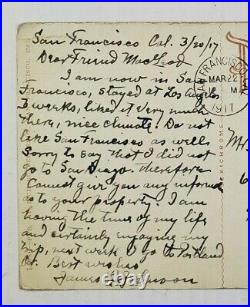 San Francisco Cal. 3/20/17
Dear Friend MacLeod
I am now in San
Francisco, stayed at Los Angeles
3 weeks, liked it very much
there, nice climate. Do not
like San Francisco as well.
Sorry to say that I did not
go to San Diego. therefore
Cannot give you any inform
as to your property. I am
having the time of my life
and certainly enjoying my
trip, next week I go to Portland
Or. Best wishes
James
SAN FRANCISCO
MAR 22
M
1917